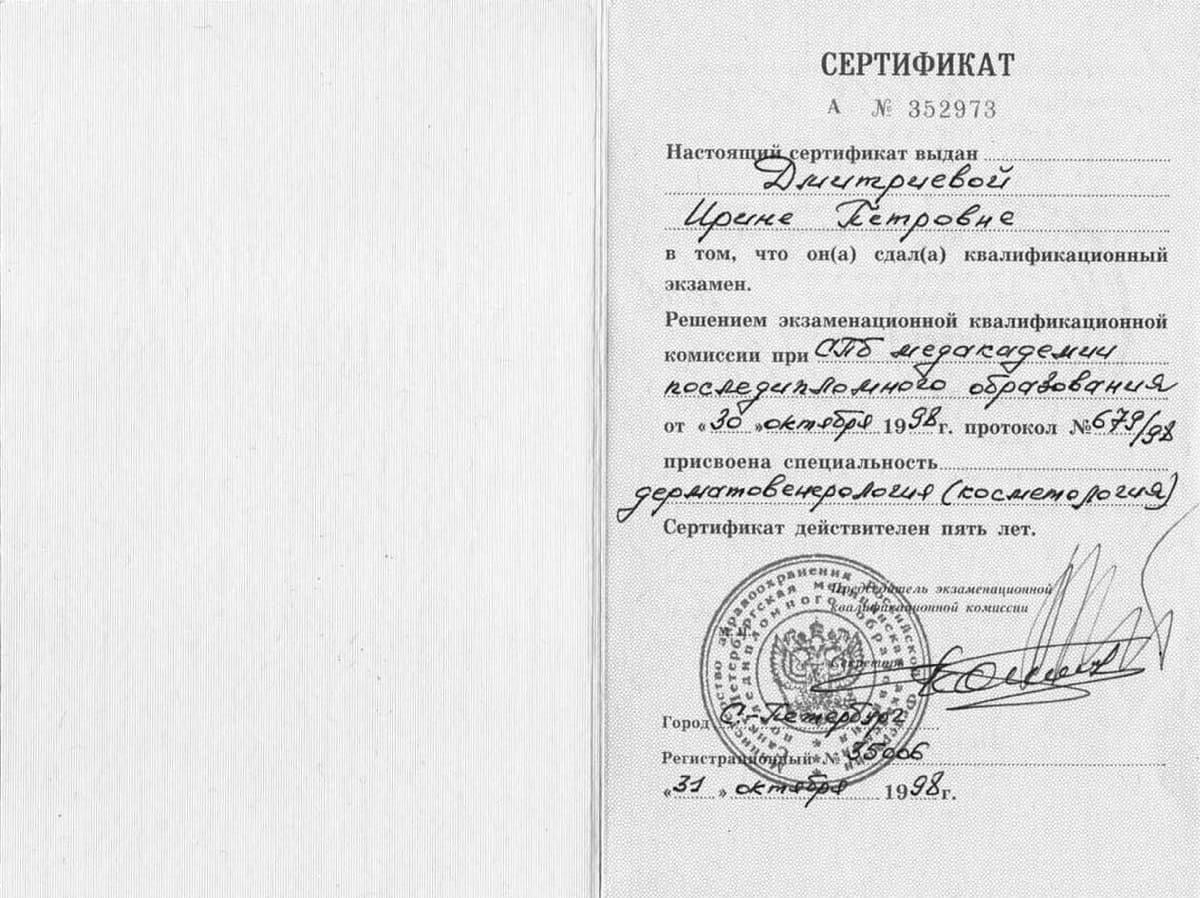 СЕРТИФИКАТ
А № 352973
Настоящий сертификат выдан
Дмитриевой
Ирине Петровне
в том, что он(а) сдал(а) квалификационный
экзамен.
Решением экзаменационной квалификационной
комиссии при СПб медакадемии
последипломного образования
от «30» октября 1998 г. протокол № 679/98
присвоена специальность
дерматовенерология (косметология)
Сертификат действителен пять лет.
Председатель экзаменационной
квалификационной комиссии
Секретарь
Министерство здравоохранения Российской Федерации
Санкт-Петербургская медицинская академия
последипломного образования
Город С.-Петербург
Регистрационный № 35006
«31» октября 1998 г.